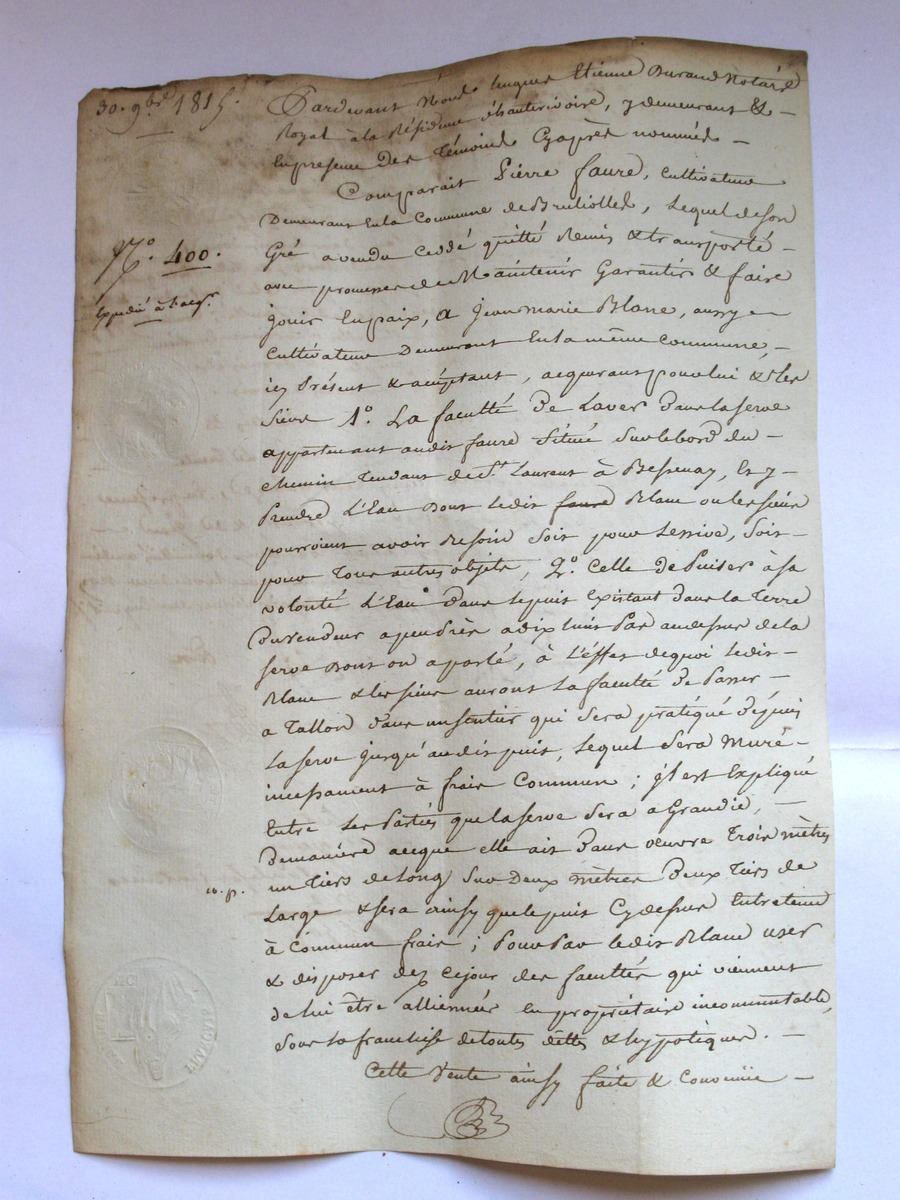 30. 9bre 1815.
Pardevant Nous Etienne Durand Notaire
Royal à la Résidence, y demeurant &
En presence des Témoins Cyaprès nommés
Comparait Pierre faure, Cultivateur
Demeurant En la Commune de Brullolles, Lequel de son
N.o 400.
Gré a vendu Ceddé quitté Remis & transporté
avec promesse de Maintenir Garantir & faire
Expédié à l'acqr.
jouir En paix, a jean marie Blanc, aussy
Cultivateur Demeurant En la même Commune,
icy Présent & acceptant, acquerant pour lui & les
Siens 1.o La faculté De Laver Dans la serve
appartenant audit faure Située Sur le bord du
chemin Tendant de St. Laurent à Bessenay, Et y
Prendre L'Eau Dont Ledit faure Blanc ou les siens
pourroient avoir Besoin Soit pour Lessive, Soit
pour Tous autres objets, 2.o Celle de Puiser à sa
volonté L'Eau Dans Le puis Existant Dans la Terre
Du vendeur apeuprès a dix huit Pas au dessus de la
serve Dont on a parlé, à L'effet de quoi Ledit
Blanc & les siens auront La faculté De Passer
a Tallon Dans un sentier qui Sera pratiqué Depuis
La serve jusqu'audit puis, Lequel Sera Muré
incessament à frais Commun ; il est Expliqué
Entre Les Parties que la serve Sera aGrandie,
De maniere a ceque elle ait Dans œuvre Trois mètres
un Tiers de Long Sur Deux mètres Deux Tiers de
Large & sera ainsy que le puit Cydessus Entretenue
à Commun frais ; Pour Par Ledit Blanc user
& disposer dez cejour des facultés qui viennent
de lui être alliennés En propriétaire incommutable,
Sous la franchise de toutes dettes & hypotèques.
Cette Vente ainsy faite & Convenue